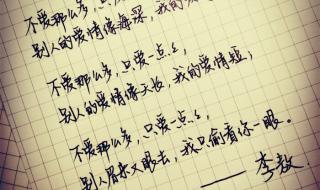 不爱那么多，只
别人的爱情像海深，我的爱
不爱那么多，只爱一点点，
别人的爱情像天长，我的爱情短，
不爱那么多，只爱一点点，
别人眉来又眼去，我只偷看你一眼。
——李敖